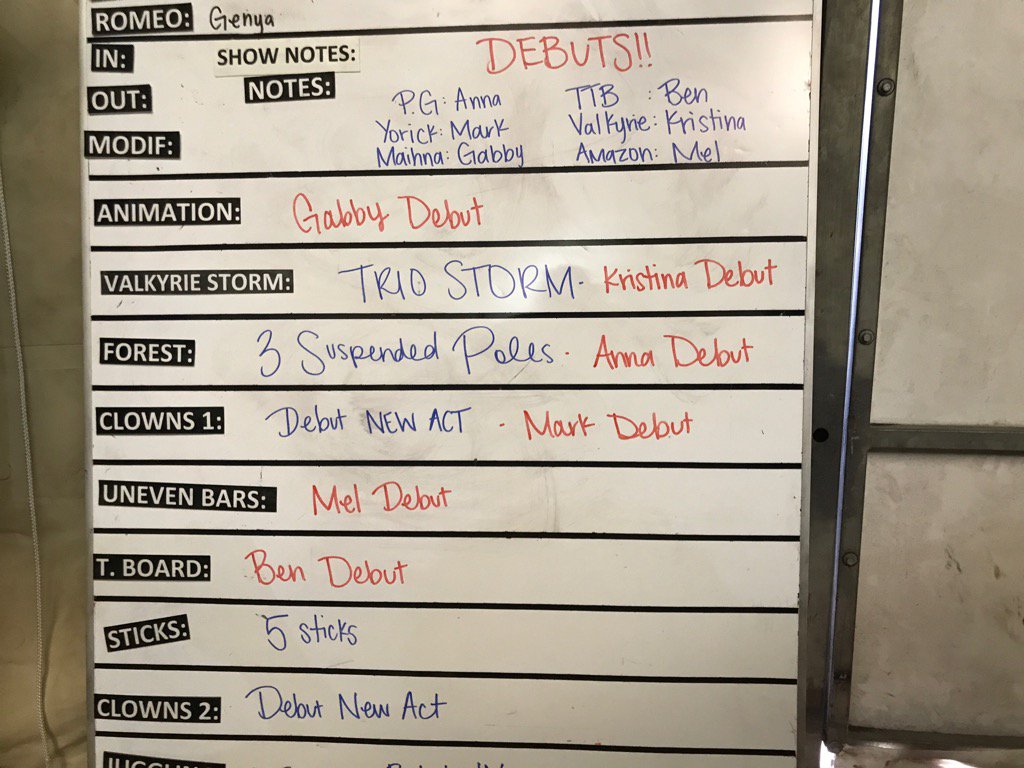 ROMEO: Genya
IN: SHOW NOTES: DEBUTS!!
OUT: NOTES: P.G: Anna TTB : Ben
Yorick: Mark Valkyrie: Kristina
MODIF: Maihna: Gabby Amazon: Mel
ANIMATION: Gabby Debut
VALKYRIE STORM: TRIO STORM - Kristina Debut
FOREST: 3 Suspended Poles - Anna Debut
CLOWNS 1: Debut NEW ACT - Mark Debut
UNEVEN BARS: Mel Debut
T. BOARD: Ben Debut
STICKS: 5 sticks
CLOWNS 2: Debut New Act